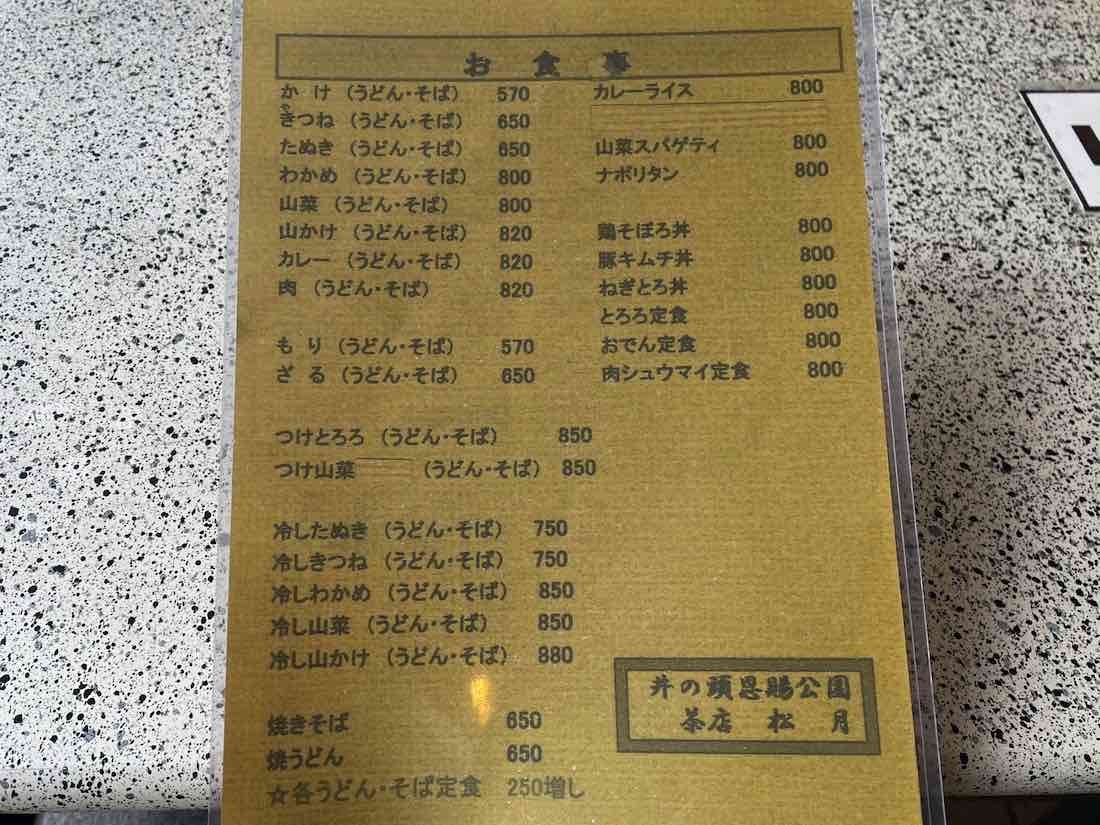 お食事
かけ（うどん・そば） 570
きつね（うどん・そば） 650
たぬき（うどん・そば） 650
わかめ（うどん・そば） 800
山菜（うどん・そば） 800
山かけ（うどん・そば） 820
カレー（うどん・そば） 820
肉（うどん・そば） 820
もり（うどん・そば） 570
ざる（うどん・そば） 650
つけとろろ（うどん・そば） 850
つけ山菜（うどん・そば） 850
冷したぬき（うどん・そば） 750
冷しきつね（うどん・そば） 750
冷しわかめ（うどん・そば） 850
冷し山菜（うどん・そば） 850
冷し山かけ（うどん・そば） 880
焼きそば 650
焼うどん 650
☆各うどん・そば定食 250増し
カレーライス 800
山菜スパゲティ 800
ナポリタン 800
鶏そぼろ丼 800
豚キムチ丼 800
ねぎとろ丼 800
とろろ定食 800
おでん定食 800
肉シュウマイ定食 800
井の頭恩賜公園
茶店 松月